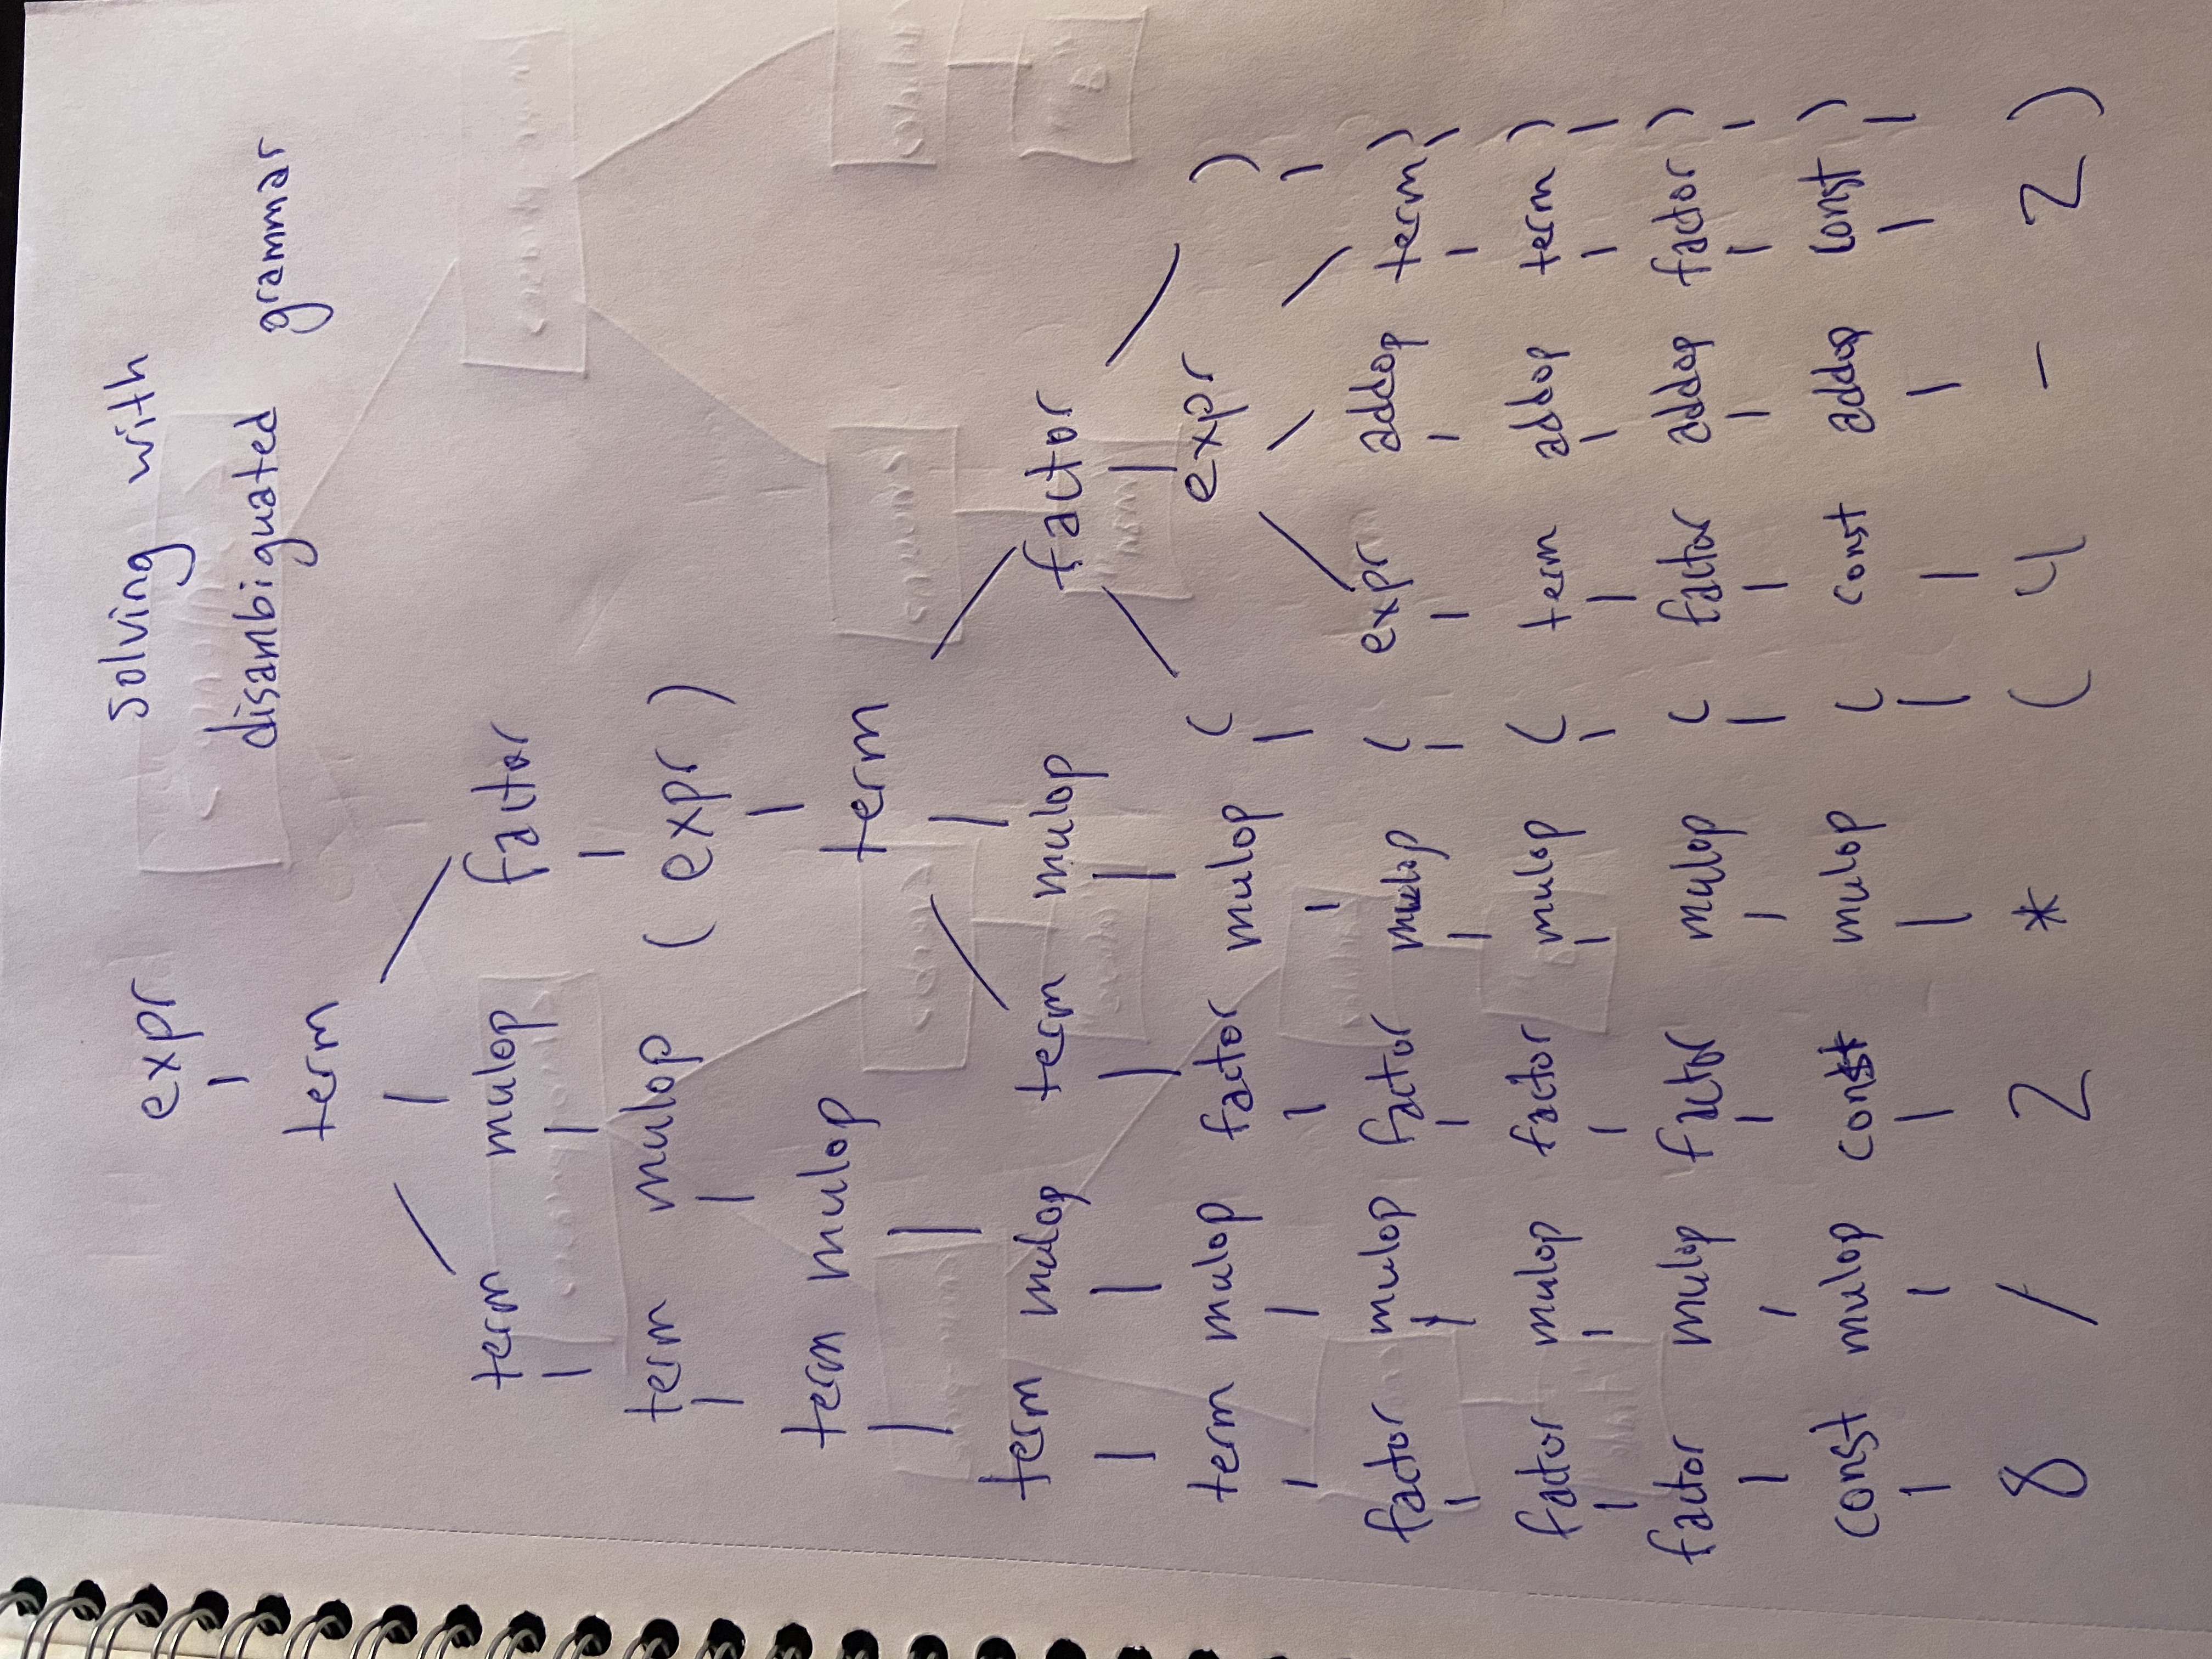 expr
solving with
disambiguated grammar
term
term mulop factor
term mulop ( expr )
term mulop term
term mulop term mulop factor
term mulop factor mulop ( expr )
factor mulop factor mulop ( expr addop term )
factor mulop factor mulop ( term addop term )
factor mulop factor mulop ( factor addop factor )
const mulop const mulop ( const addop const )
8 / 2 * ( 4 - 2 )